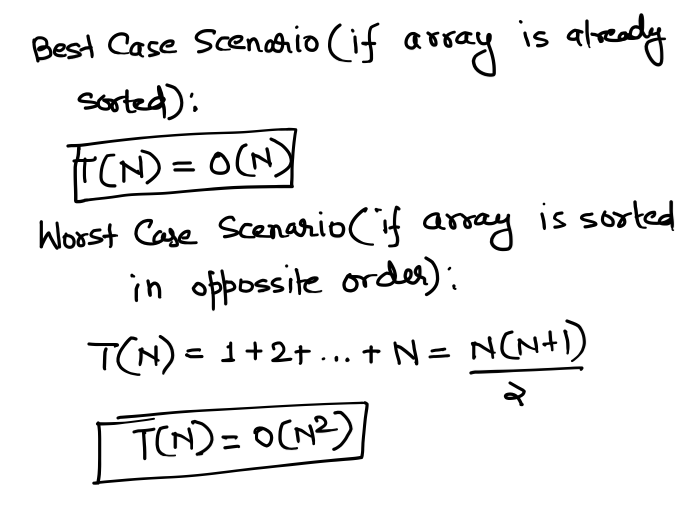 Best Case Scenario (if array is already
sorted):
T(N) = O(N)
Worst Case Scenario (if array is sorted
in oppossite order):
T(N) = 1+2+...+N = N(N+1)
2
T(N) = O(N²)